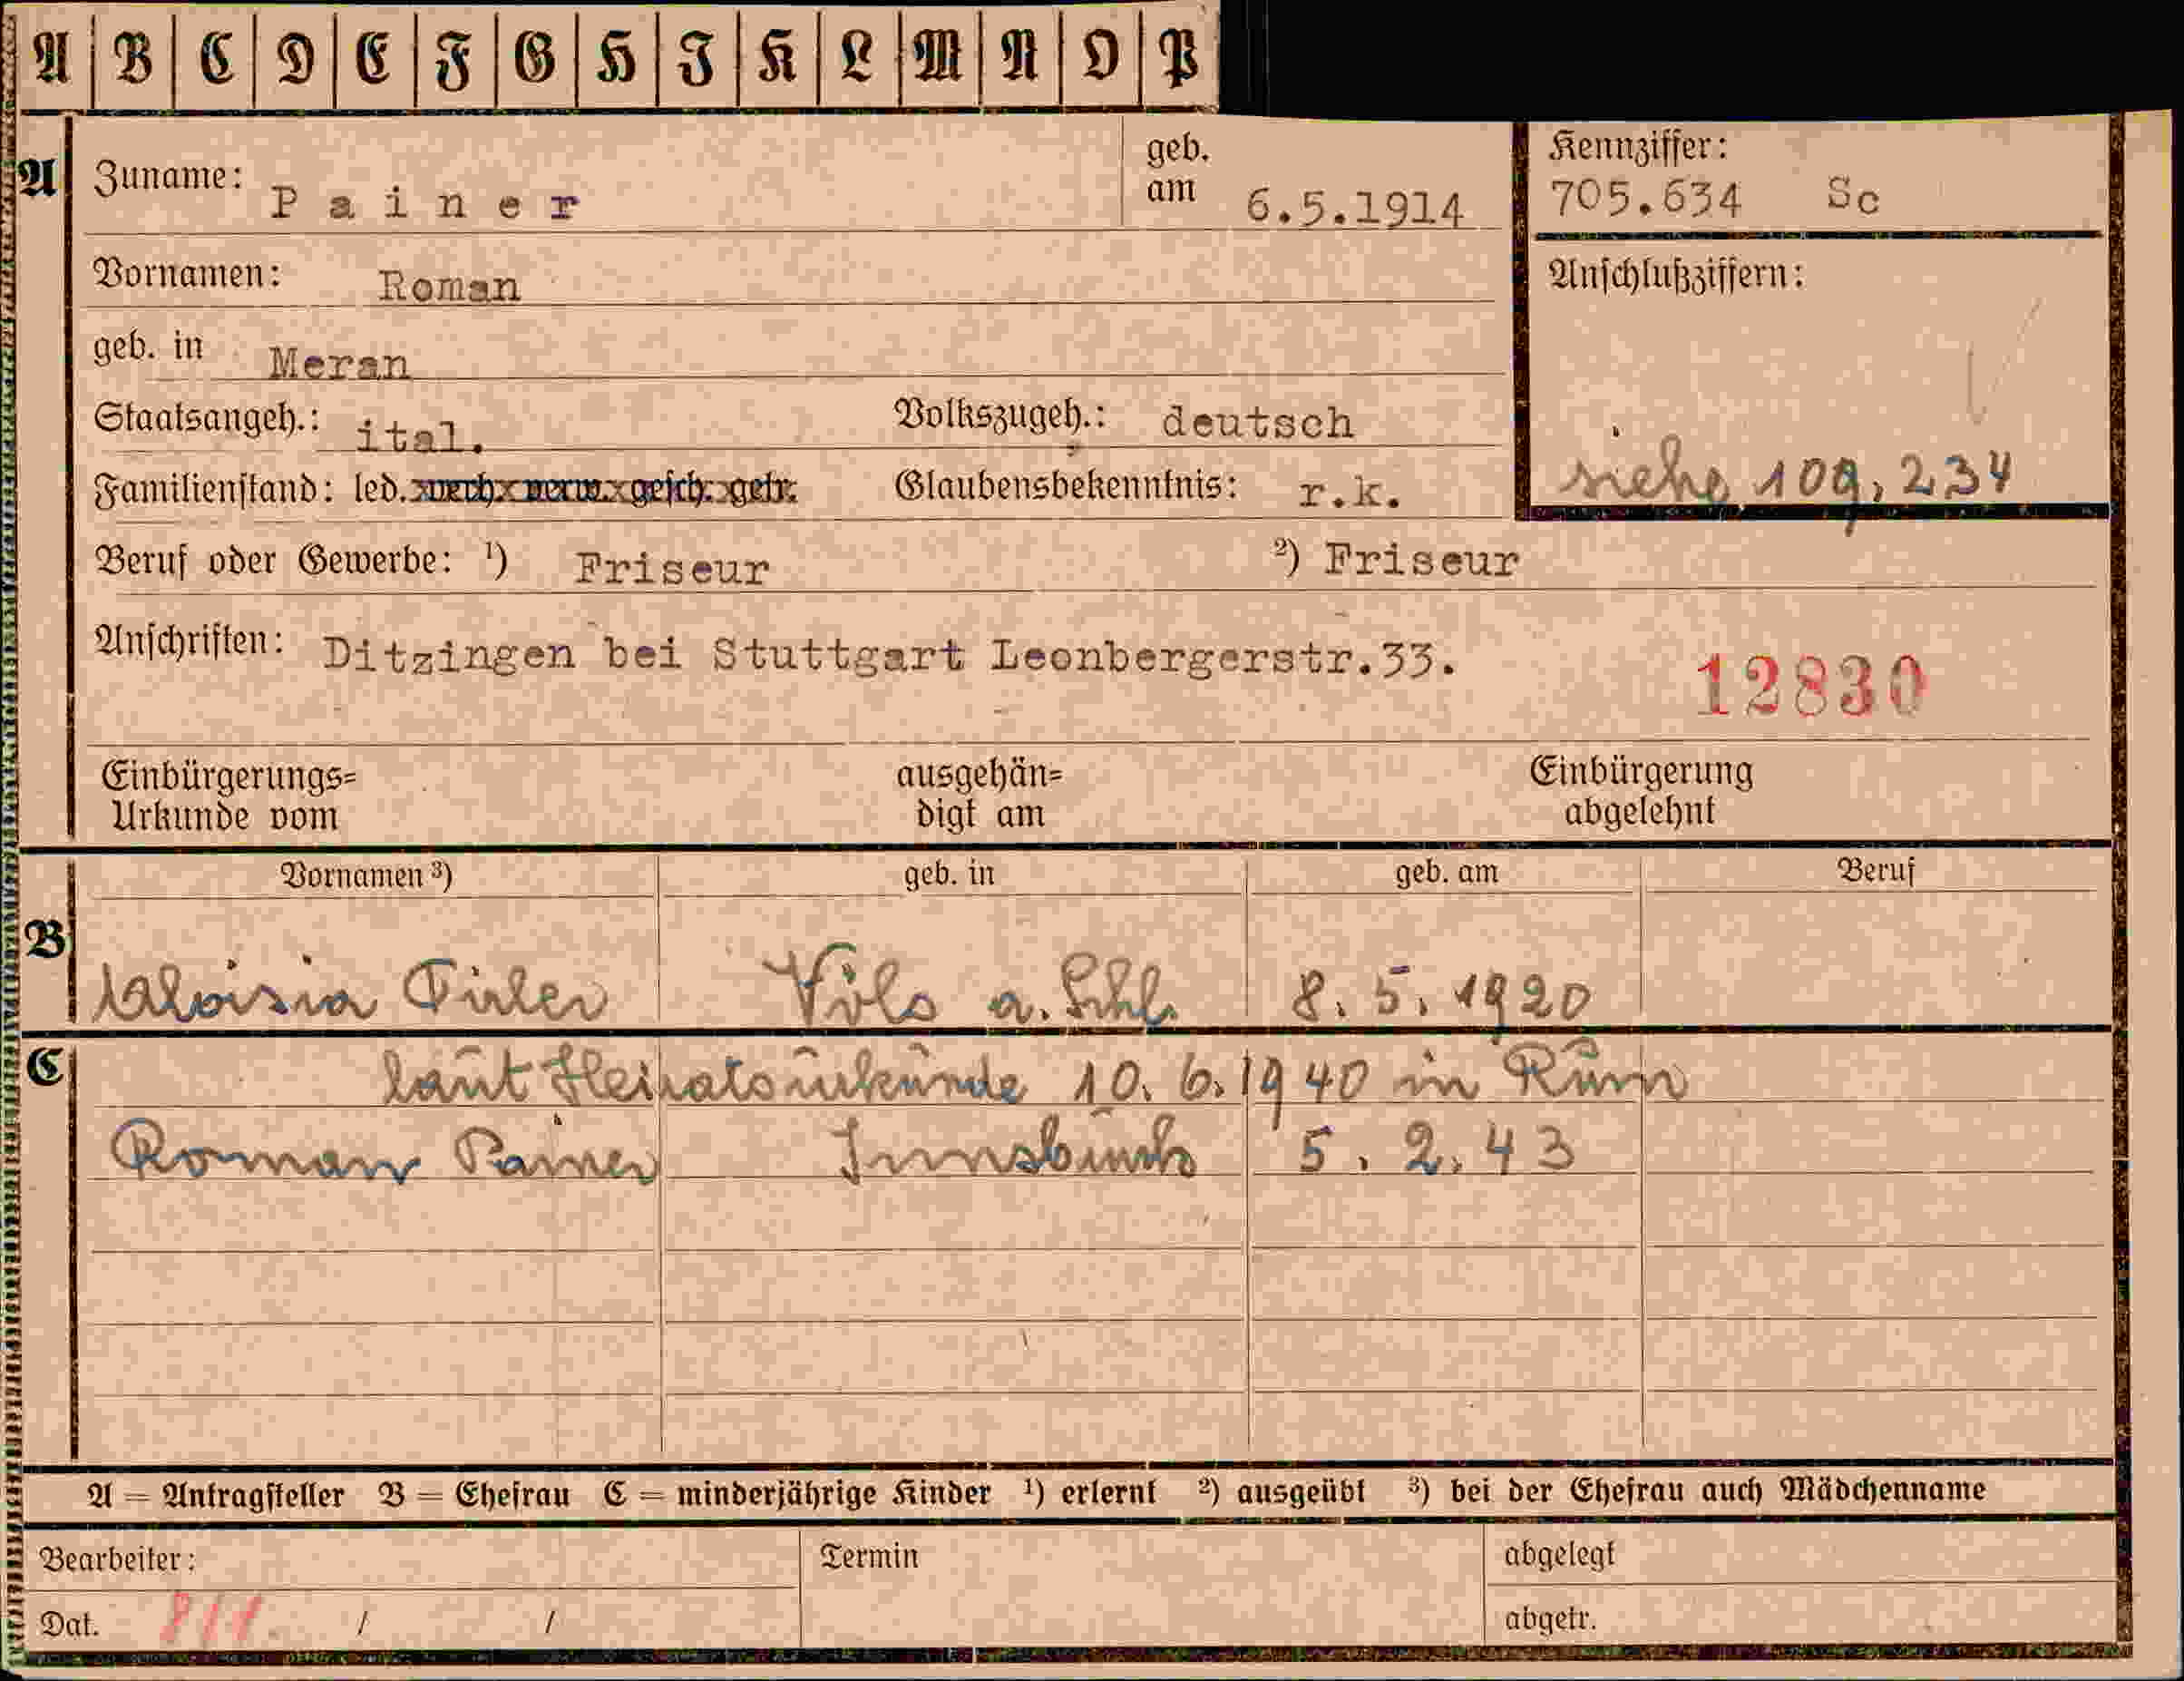 A B C D E F G H I K L M N O P
A Zuname: Painer geb. am 6.5.1914 Kennziffer: 705.634 Sc
Vornamen: Roman Anschlußziffern:
geb. in Meran
Staatsangeh.: ital. Volkszugeh.: deutsch
siehe 109,234
Familienstand: led. verh. verw. gesch. getr. Glaubensbekenntnis: r.k.
Beruf oder Gewerbe: ¹) Friseur ²) Friseur
Anschriften: Ditzingen bei Stuttgart Leonbergerstr.33.
12830
Einbürgerungs= ausgehän= Einbürgerung
Urkunde vom digt am abgelehnt
Vornamen ³) geb. in geb. am Beruf
B Aloisia Völs a. Schl. 8.5.1920
C laut Heiratsurkunde 10.6.1940 in Rum
Roman Painer Innsbruck 5.2.43
A = Antragsteller B = Ehefrau C = minderjährige Kinder ¹) erlernt ²) ausgeübt ³) bei der Ehefrau auch Mädchenname
Bearbeiter: Termin abgelegt
Dat. / / abgetr.